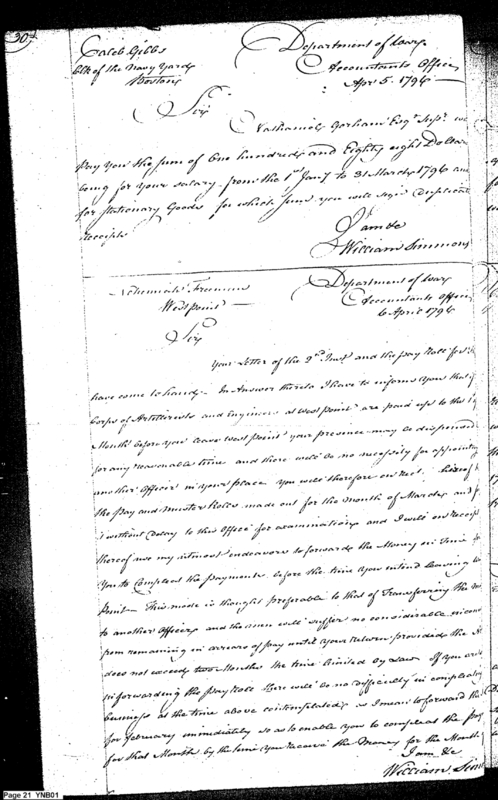 30
Caleb Gibbs
Clk of the Navy Yard
Boston
Department of War
Accountants Office
Apr 5. 1796
Sir
Nathaniel Gorham Esqr. Supr. we
Pay you the sum of One hundred and Eighty eight Dollars
being for your salary from the 1st Jany to 31 March 1796 an
for stationary Goods for which sum you will sign Duplicate
receipts
I am &c
William Simmons
Nehemiah Freeman
West point
Department of War
Accountants Office
6 April 1796
Sir
Your Letter of the 2nd Inst and the pay Roll for
have come to hand. In Answer thereto I have to inform you that if
Corps of Artillerists and Engineers at West point are paid up to the
Month before you leave West point your presence may be dispensed
for any reasonable time and there will be no necessity for appointing
another Officer in your place you will therefore
the pay and muster Rolls made out for the Month of March and
it without delay to this Office for examination and I will on receipt
thereof use my utmost endeavors to forward the Money in time for
you to Compleat the payments before the time you intend leaving We
Point. This mode is thought preferable to that of Transferring the
to another Officer and the men will suffer no considerable
from remaining in arrears of pay until your return provided the
does not exceed two Months the time limited by Law If you are
in forwarding the pay Roll there will be no difficulty in compleating
business at the time above contemplated, as I mean to forward the
for February immediately so as to enable you to compleat the pay
for that Month by the time you receive the Money for the Month
I am &c
William Sim
Page 21 YNB01